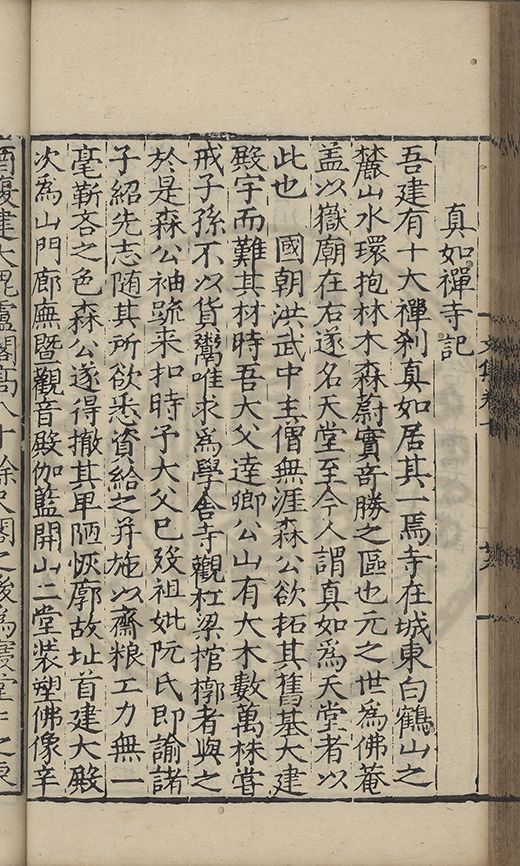 真如禪寺記
吾建有十大禪刹真如居其一焉寺在城東白鶴山之
麓山水環抱林木森蔚實竒勝之區也元之世為佛菴
盖以嶽廟在右遂名天堂至今人謂真如為天堂者以
此也 國朝洪武中主僧無涯森公欲拓其舊基大建
殿宇而難其材時吾大父達卿公山有大木數萬株嘗
戒子孫不以貨鬻唯求為學舎寺觀杠梁棺槨者與之
於是森公袖䟽来扣時予大父巳歿祖妣阮氏即諭諸
子紹先志随其所欲悉資給之并施以齋粮工力無一
毫靳吝之色森公遂得撤其卑陋恢廓故址首建大殿
次為山門廊廡暨觀音殿伽藍開山二堂装塑佛像辛
酉復建大毘盧閣髙八十餘尺閣之後為寢堂
文集卷七